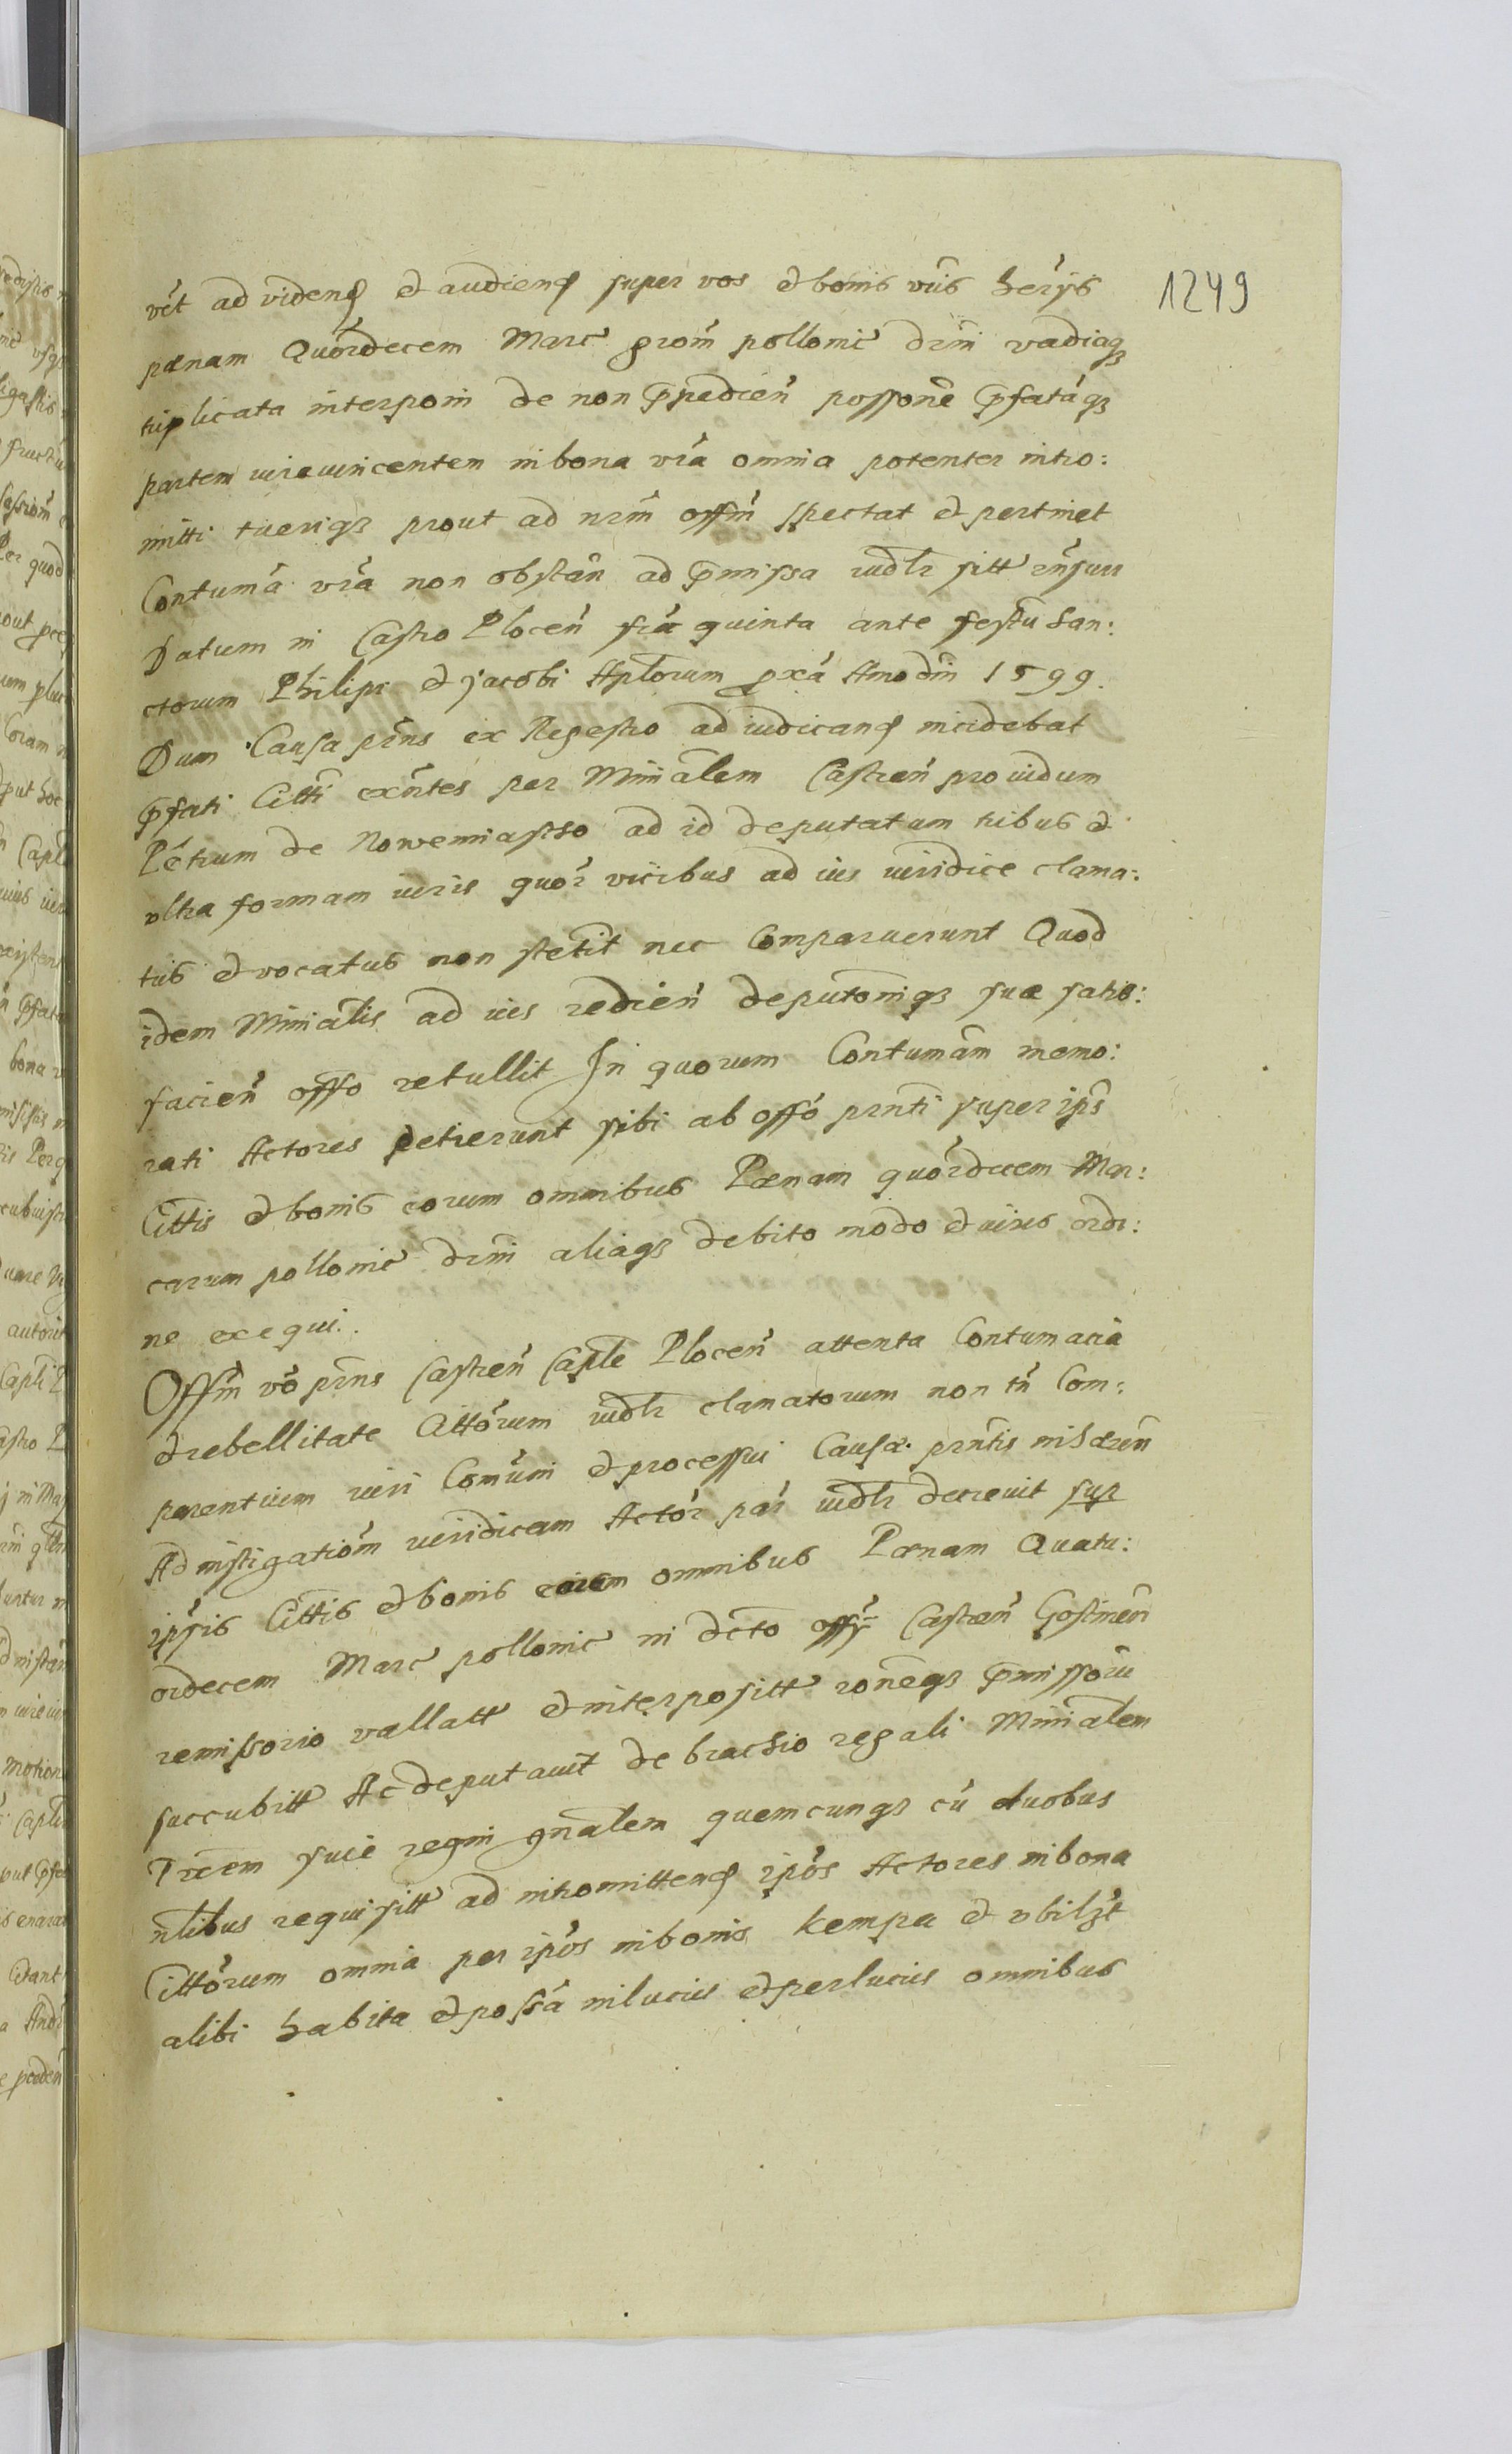 1249
vr̃t ad vidend et audiend super vos et bonis vr̃is her̃ijs
pœnam Quor̃decem Marc̃ grom̃ pollonic̃ dr̃m̃i vadiaqʒ
triplicata interponi de non ꝑpedien̄ possone p̄fatãqʒ
partem iurevincentem in bona vr̃a omnia potenter intro:
mitti tueriqʒ prout ad nr̃m off̃m spectat et pertinet
Contumã vr̃a non obstañ ad p̄missa iudlr̃ sitt̃ rñsuri
Datum in Castro Ploceñ fr̃ia quinta ante festũ San:
ctorum Philipi et Jacobi Apl̃orum pxã Año dñi 1599.
Dum Causa pr̃ns ex Regestro ad iudicand incidebat
p̄fati Citti exñtes per Miniãlem Castreñ providum
Petrum de Nowemiasto ad id deputatum tribus et
vltra formam iuris quor̃ vicibus ad ius iuridice clama:
tus et vocatus non stetit nec Comparuerunt Quod
idem Miniãlis ad ius redieñ deputõniqʒ suæ satis:
facieñ offo retullit In quorum Contumãm memo:
rati Actores petierunt sibi ab offõ prñti super ips̃
Cittis et bonis eorum omnibus Pœnam quor̃decem Mar:
carum pollonic̃ dr̃m̃i aliaqʒ debito modo et iuris ordi:
ne exequi.
Off̃m võ pr̃ns Castreñ Caplẽ Ploceñ attenta Contumacia
et rebellitate Cittõrum iudlr̃ clamatorum non tñ Com:
parentium iuri Comũni et processui Causæ prñtis inhæreñ
Ad instigatiõm iuridicam Actõr̃ par̃ iudlr̃ decrevit sup
ips̃is Cittis et bonis eorum omnibus Pœnam Quatu:
ordecem Marc̃ pollonic̃ in dcto offỹ Castreñ Gostineñ
remissorio vallatt̃ et interpositt̃ rõneqʒ p̄missõrũ
succubitt̃ Ac deputavit de brachio regali Miniãlem
Tr̃rem sive regni gñalem quemcunqʒ cũ duobus
nl̃ibus requisitt̃ ad intromittend ipõs Actores in bona
Cittõrum omnia per ipõs in bonis Kempa et vbilʒt
alibi habita et possã in lucius et per lucius omnibus